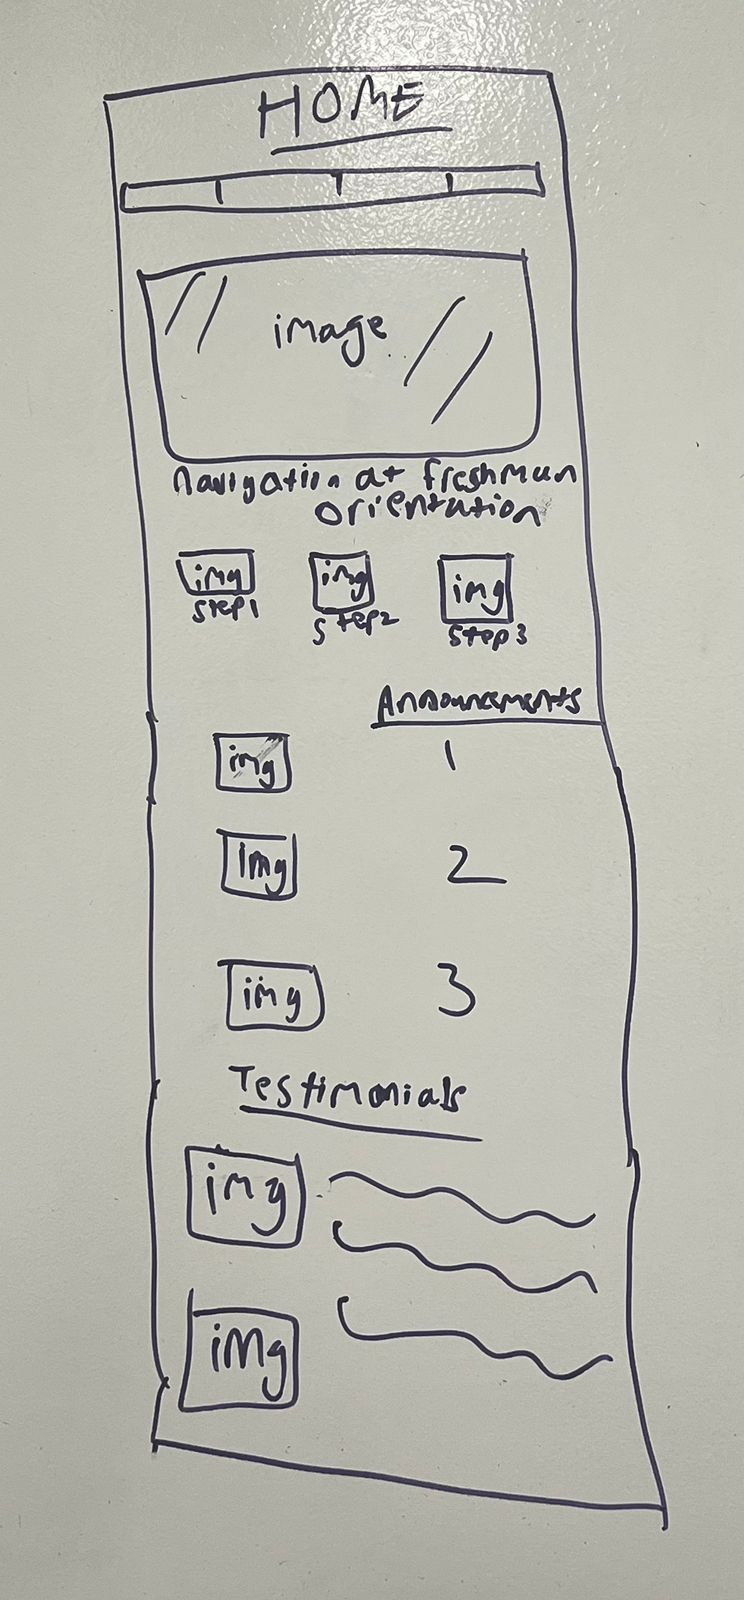 HOME
image
Navigation at freshman
orientation
img img img
step1 step2 step3
Announcements
img 1
img 2
img 3
Testimonials
img
img